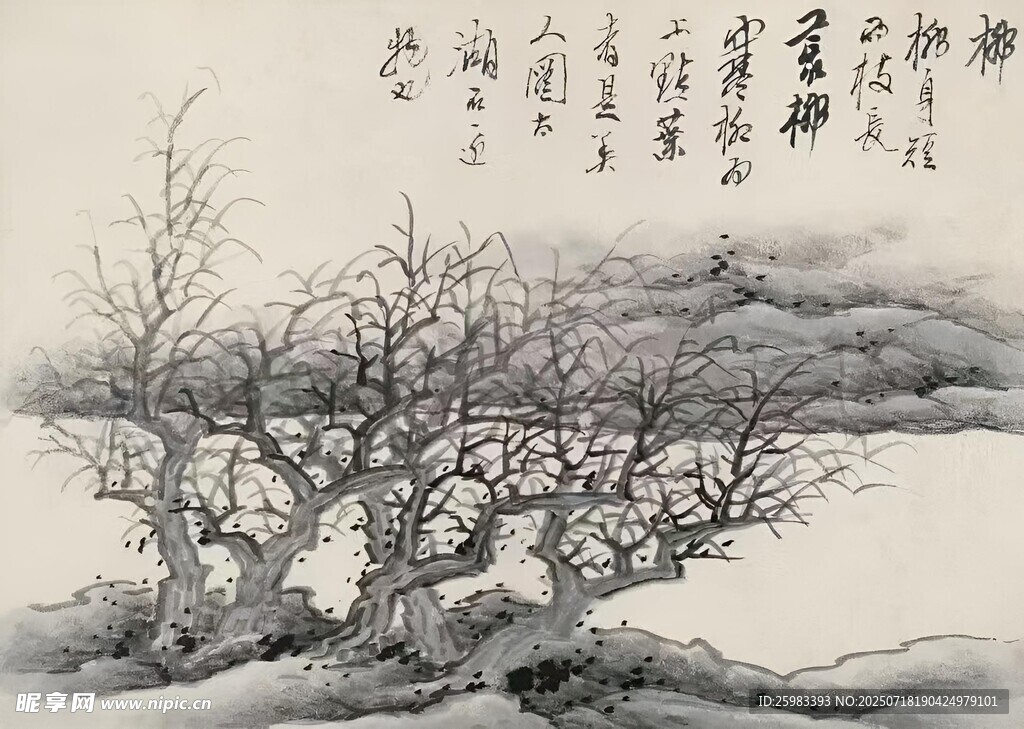 柳
柳身短
而枝長
叢柳
寒柳而
不點葉
者是美
人圖太
湖石近
物也
昵享网 www.nipic.cn
ID:25983393 NO:20250718190424979101